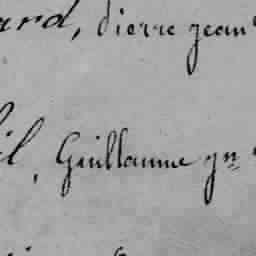 ard, Pierre jean
il, Guillaume jn